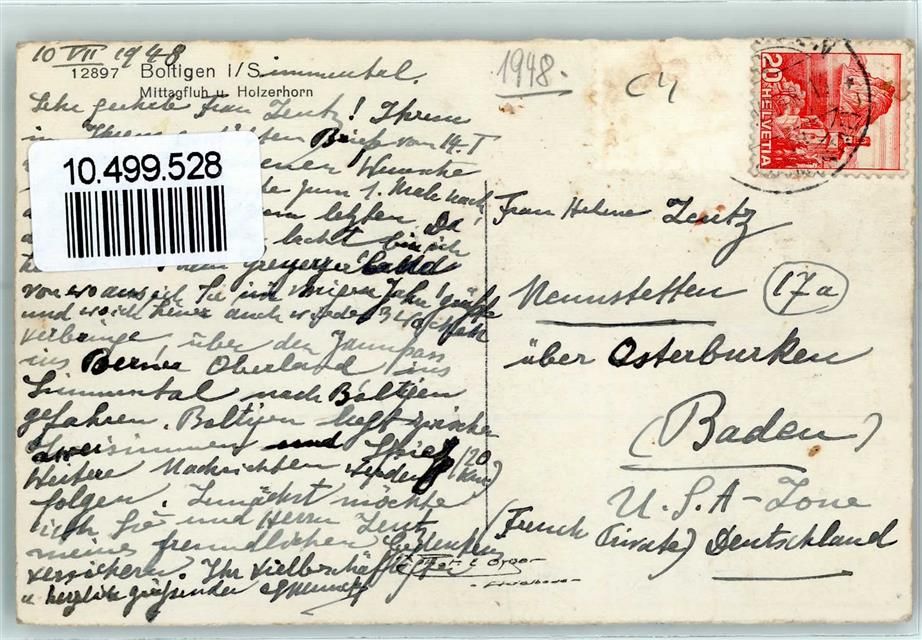 10 VII 1948
1948.
C4
12897 Boltigen i/Simmental.
Mittagfluh u. Holzerhorn
20 HELVETIA
Sehr geehrte Frau Zentz! Ihrem
in Ihrem Brief von 14. I
10.499.528
Wunsche
zum 1. Male nach
letzten Da
lacht bin ich
Greyerzer Land
von wo aus ich Sie im vorigen Jahr grüßte
und wo ich heuer auch wieder 3 Wochen
verbringe, über den Jaunpass
ins Berner Oberland ins
Simmental nach Boltigen
gefahren. Boltigen liegt zwischen
Zweisimmen und Spiez (20 km)
Weitere Nachrichten werden
folgen. Zunächst möchte
ich Sie und Herrn Zentz
meines freundlichen Gedenkens
versichern. Ihr vielbeschäftigter
u herzlich grüßender
Frau Helene Zentz
Neunstetten (17a)
über Osterburken
(Baden)
U.S.A-Zone
(French Private) Deutschland